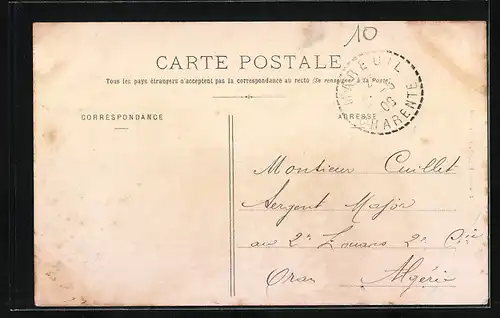 10
CARTE POSTALE
Tous les pays étrangers n'acceptent pas la correspondance au recto (Se renseigner à la Poste)
MAREUIL
CHARENTE
CORRESPONDANCE
ADRESSE
Monsieur Cuillet
Sergent Major
au 2e Zouaves 2e Cie
Oran Algérie